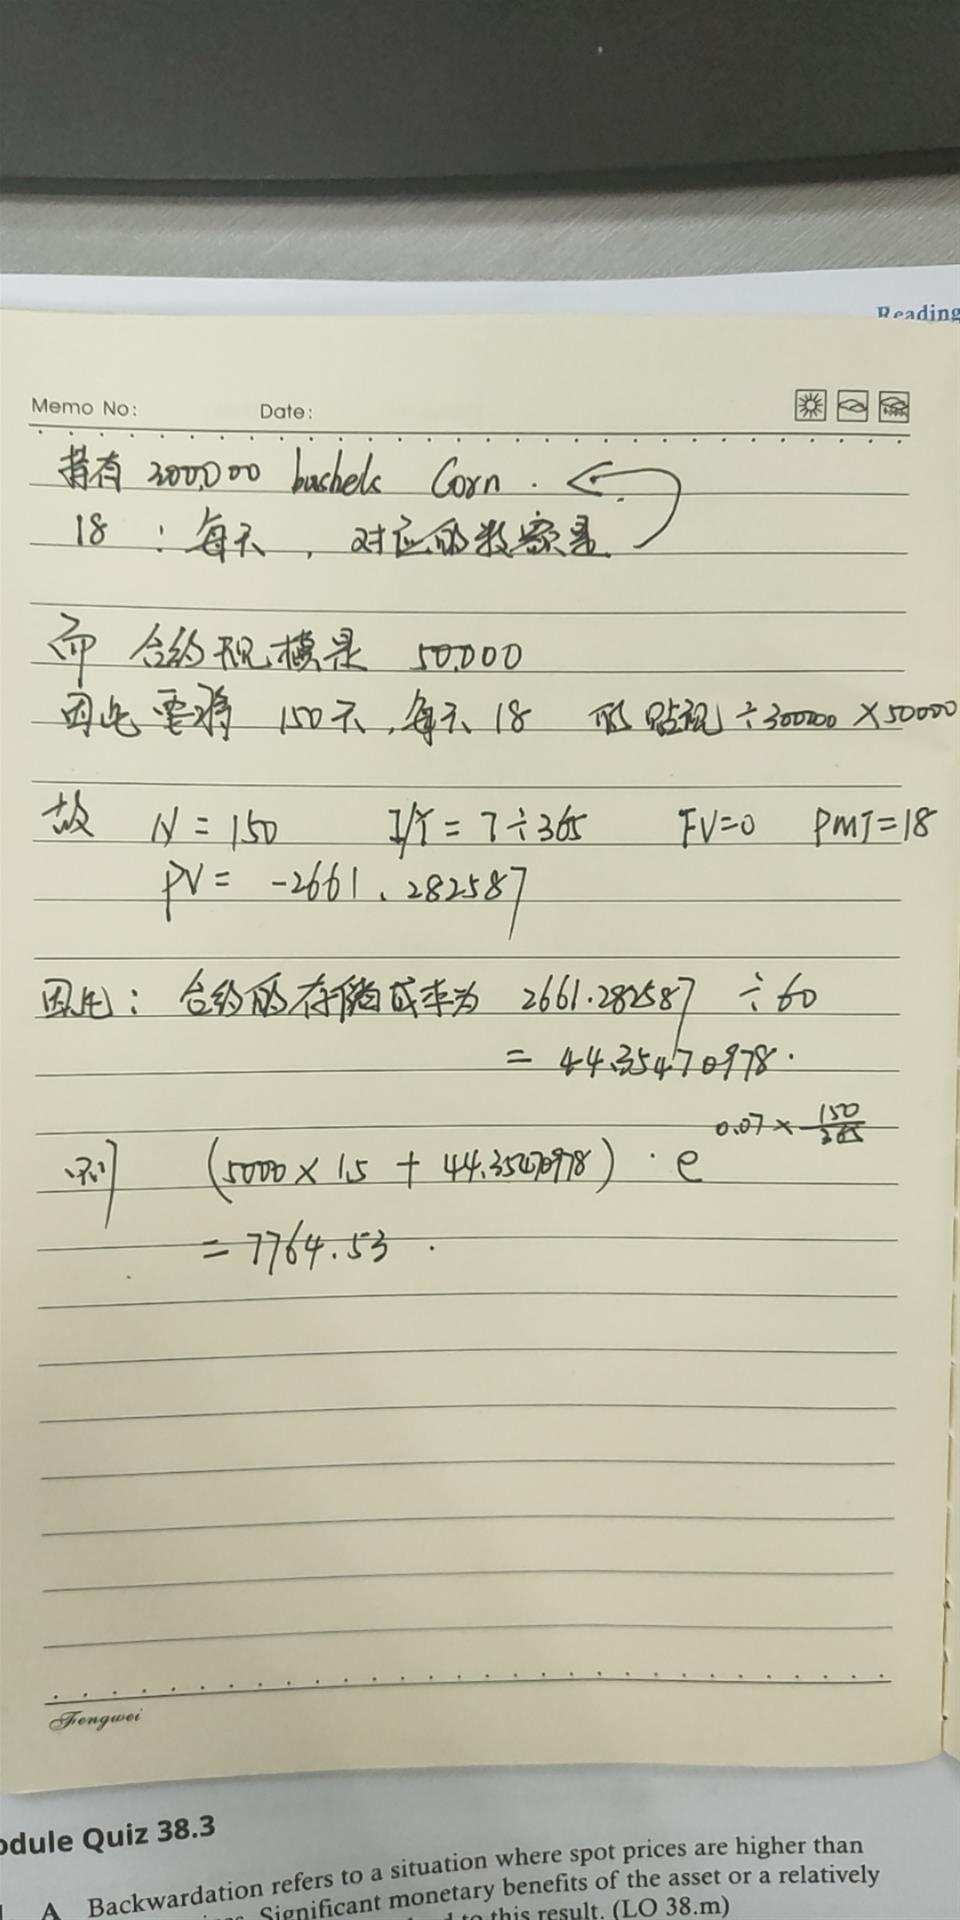 Reading
Memo No:
Date:
持有 300,000 bushels Corn.
18 : 每天, 对应的数额是
而 合约规模是 50,000
因此 要将 150天, 每天 18 的 贴现 ÷300000 ×50000
故 N = 150 I/Y = 7÷365 FV=0 PMT=18
PV = -2661.282587
因此: 合约的存储成本为 2661.282587 ÷60
= 44.35470978.
则 (5000 × 1.5 + 44.35470978) · e^{0.07 × 150/365}
= 7764.53.
Fengwei
odule Quiz 38.3
A Backwardation refers to a situation where spot prices are higher than
Significant monetary benefits of the asset or a relatively
to this result. (LO 38.m)